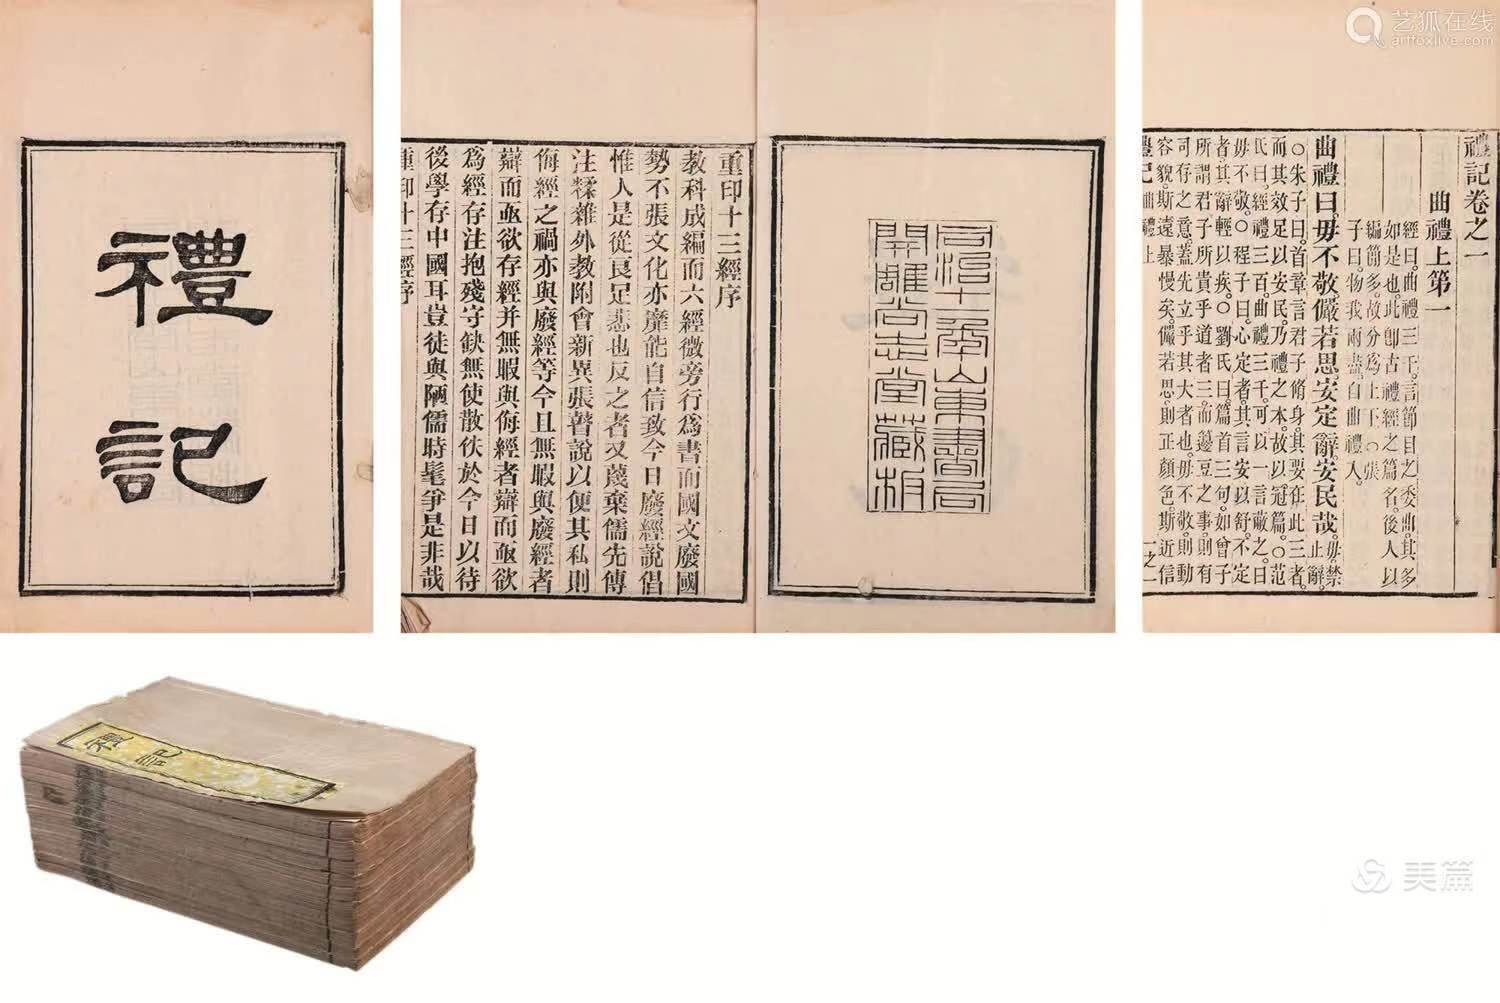 禮記
重印十三經序
教科成編而六經微旁行爲書而國文廢國
勢不張文化亦靡能自信致今日廢經說倡
惟人是從良足悲也反之者又蔑棄儒先傳
注糅雜外教附會新異張瞽說以便其私則
侮經之禍亦與廢經等今且無暇與廢經者
辯而亟欲存經并無暇與侮經者辯而亟欲
爲經存注抱殘守缺無使散佚於今日以待
後學存中國耳豈徒與陋儒時髦爭是非哉
重印十三經序
同治十一年山東書局
開雕尚志堂藏板
艺狐在线
artfoxlive.com
禮記卷之一
曲禮上第一
經曰。曲禮三千。言節目之委曲。其多
如是也。此卽古禮經之篇名。後人以
編簡多。故分爲上下。〇張
子曰。物我兩盡。自曲禮入。
曲禮曰。毋不敬。儼若思。安定辭。安民哉。毋禁止辭。
〇朱子曰。首章言君子脩身。其要在此三者。
而其效足以安民。乃禮之本。故以冠篇。〇范
氏曰。經禮三百。曲禮三千。可以一言蔽之。曰
毋不敬。〇程子曰。心定者。其言安以舒。不定
者。其辭輕以疾。〇劉氏曰。篇首三句。如曾子
所謂君子所貴乎道者三。而籩豆之事。則有
司存之意。蓋先立乎其大者也。毋不敬。則動
容貌。斯遠暴慢矣。儼若思。則正顏色。斯近信
禮記 曲禮上 一之一
禮記
美篇